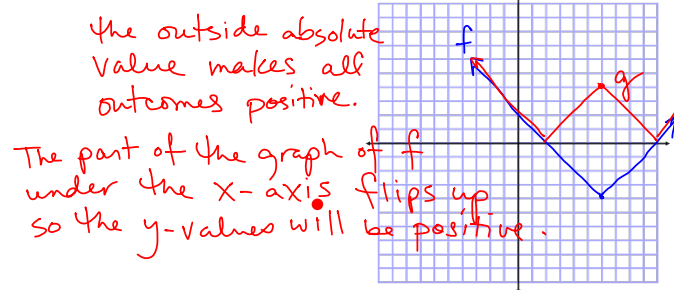 the outside absolute
value makes all
outcomes positive.
f
g
The part of the graph of f
under the x-axis flips up
so the y-values will be positive.